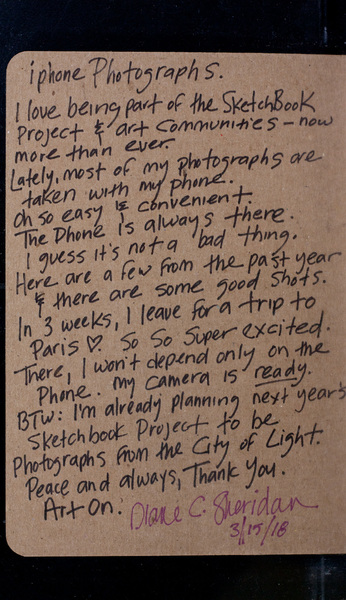 iphone Photographs.
I love being part of the SketchBook
Project & art Communities - now
more than ever.
Lately, most of my photographs are
taken with my phone.
Oh so easy & convenient.
The Phone is always there.
I guess it's not a bad thing.
Here are a few from the past year
& there are some good shots.
In 3 weeks, I leave for a trip to
Paris ♡. So So Super excited.
There, I won't depend only on the
Phone. my Camera is ready.
BTW: I'm already planning next year's
Sketchbook Project to be
Photographs from the City of Light.
Peace and always, Thank You.
Art On: Diane C. Sheridan
3/15/18